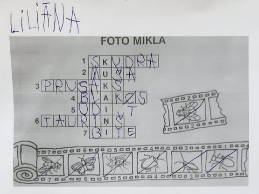 LiLiĀNA
FOTO MIKLA
1 SKUDRA
2 AUSA
3 PRUSAKS
4 BLAKŠ
5 ODI T
6 TAURIŅ
7 BITE